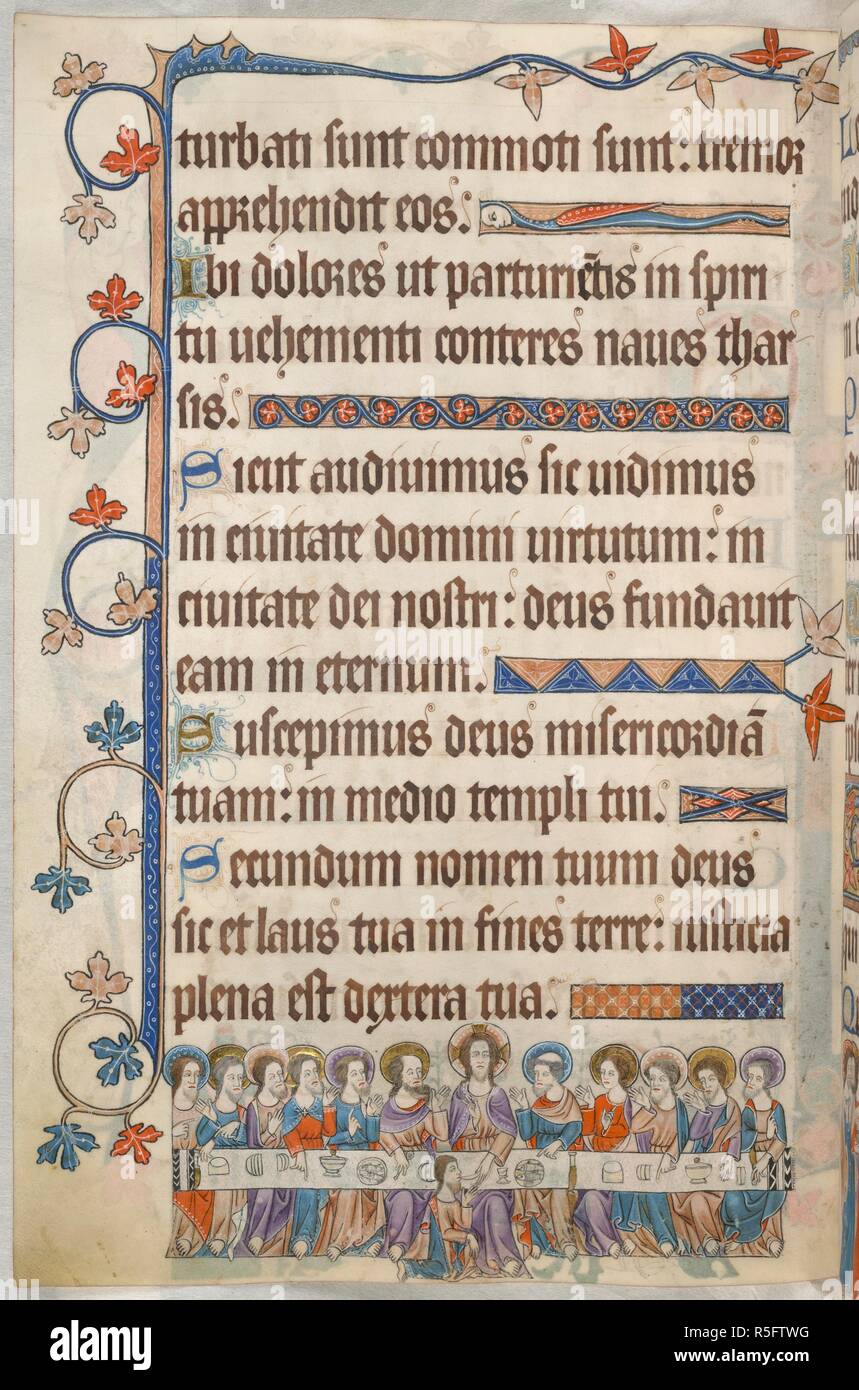 turbati sunt commoti sunt: tremor
apprehendit eos.
Ibi dolores ut parturiẽtis in spiri
tu uehementi conteres naues thar
sis.
Sicut audiuimus sic uidimus
in ciuitate domini uirtutum: in
ciuitate dei nostri: deus fundauit
eam in eternum.
Suscepimus deus misericordiã
tuam: in medio templi tui.
Secundum nomen tuum deus
sic et laus tua in fines terre: iusticia
plena est dextera tua.
alamy
Image ID: R5FTWG
www.alamy.com